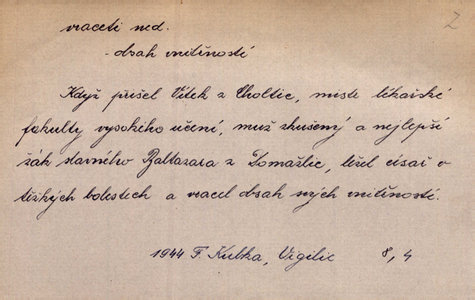 Z
vraceti ned.
- obsah vnitřností
Když přišel Vítek z Choltic, mistr lékařské
fakulty vysokého učení, muž zkušený a nejlepší
žák slavného Baltazara z Domažlic, ležel císař v
těžkých bolestech a vracel obsah svých vnitřností.
1944 F. Kubka, Vigilie 8, 4